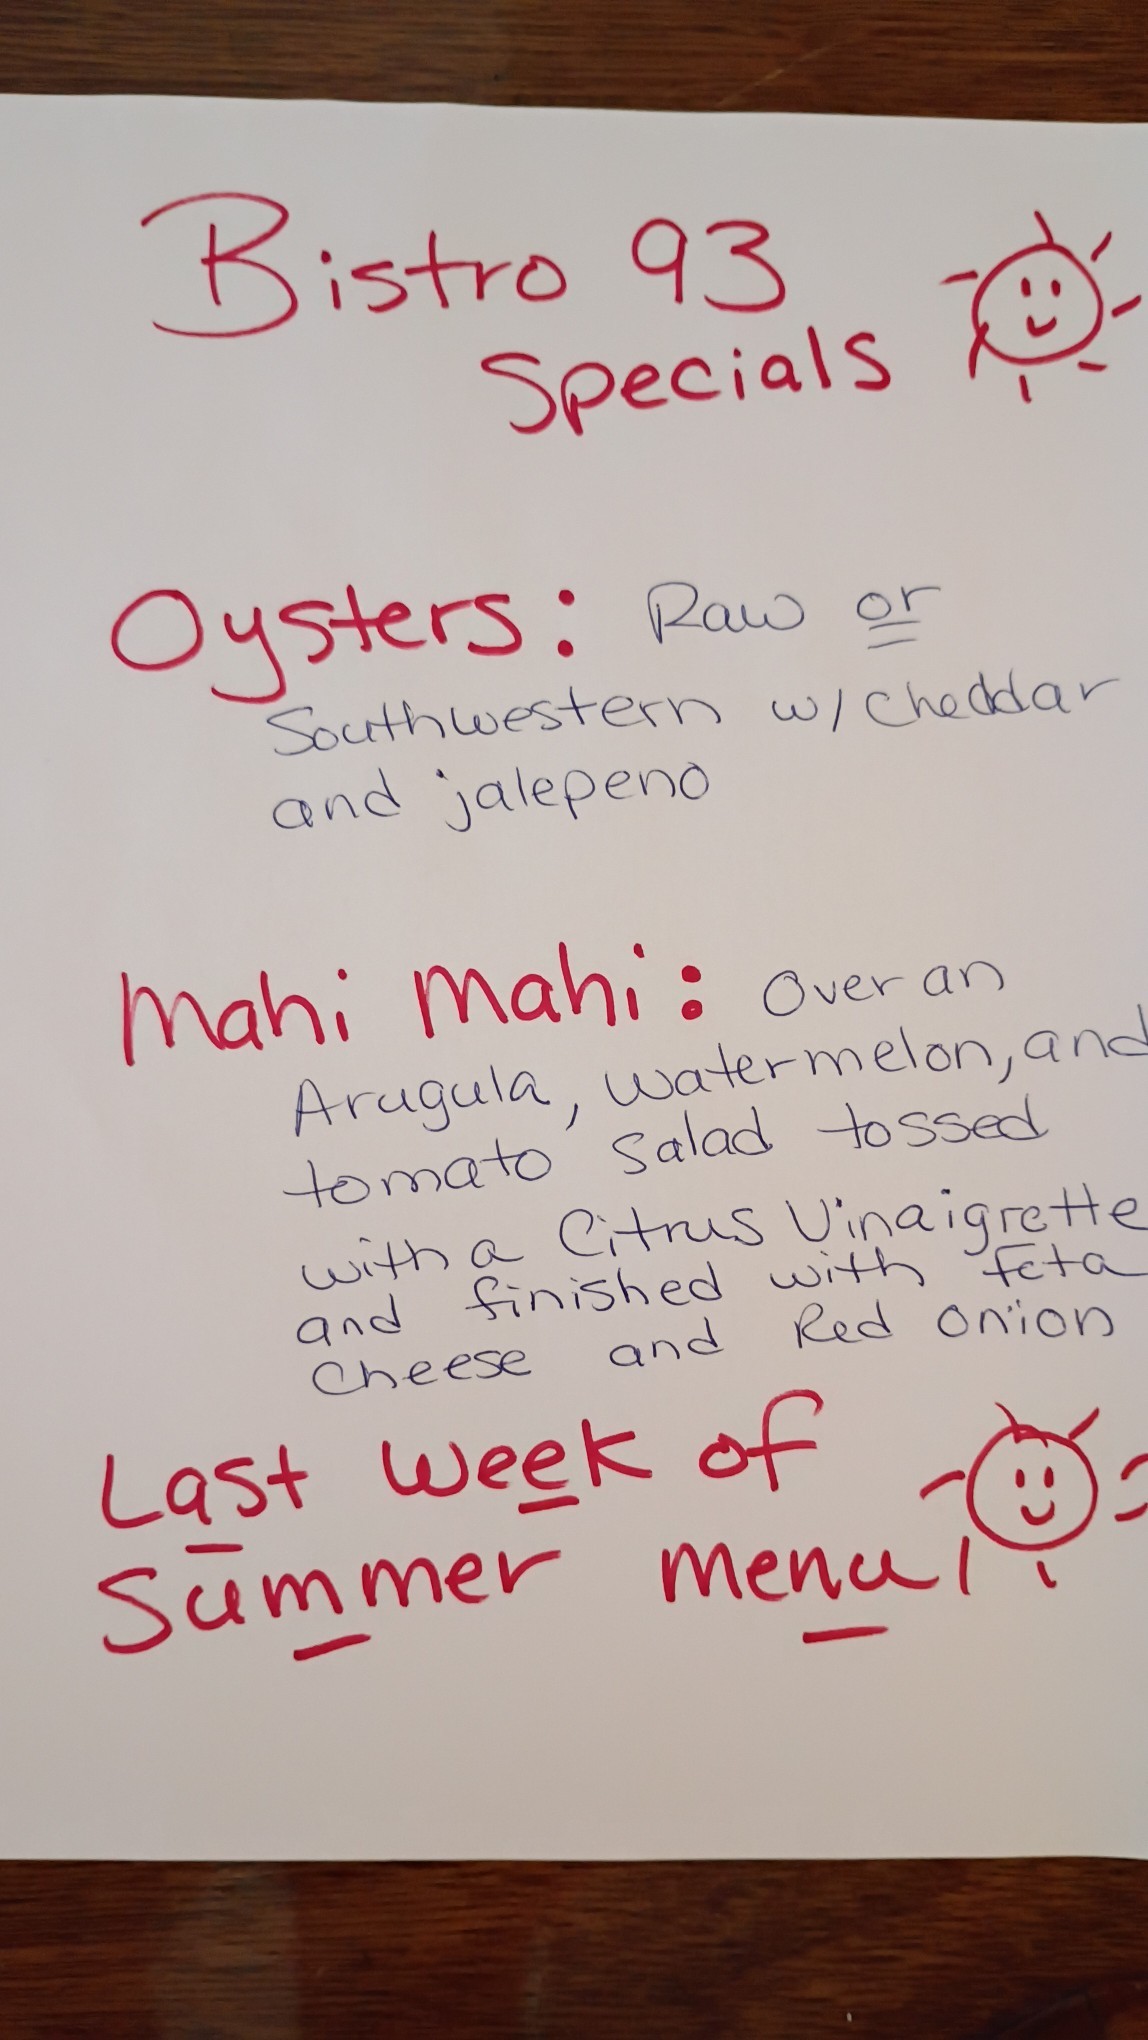 Bistro 93
Specials
Oysters: Raw or
Southwestern w/ cheddar
and jalepeno
Mahi Mahi: Over an
Arugula, watermelon, and
tomato salad tossed
with a Citrus Vinaigrette
and finished with feta
Cheese and Red onion
Last week of
Summer menu!